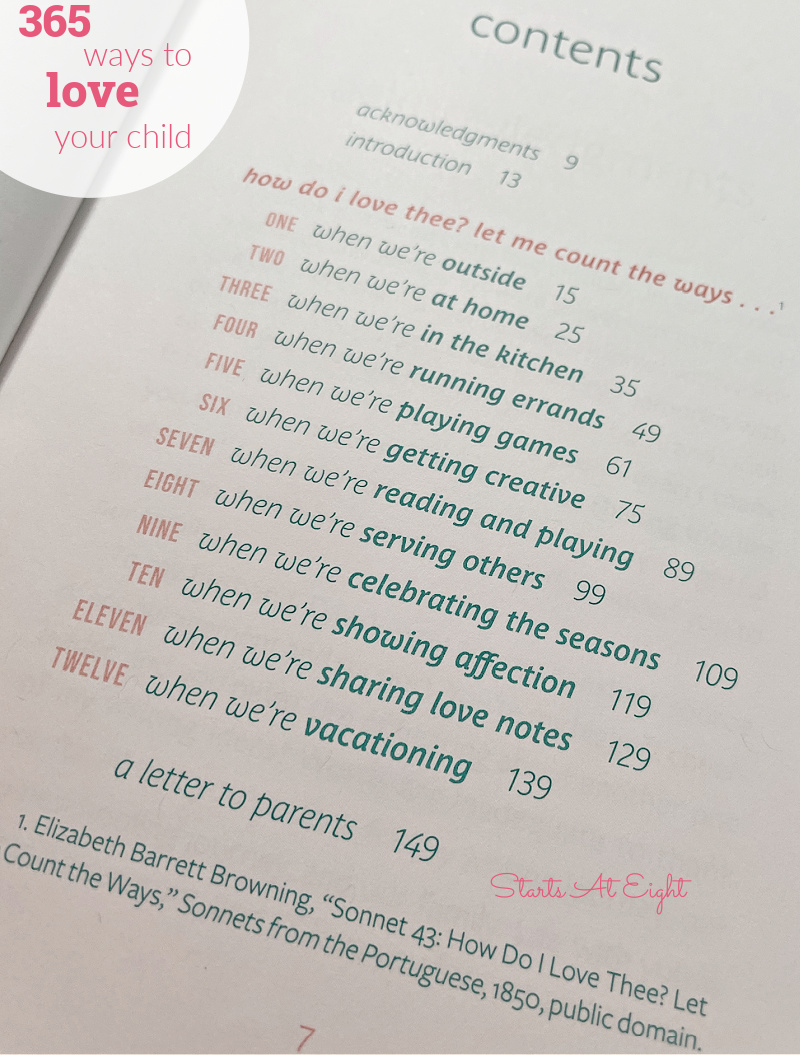 365
ways to
love
your child
contents
acknowledgments 9
introduction 13
how do i love thee? let me count the ways . . .¹
ONE when we're outside 15
TWO when we're at home 25
THREE when we're in the kitchen 35
FOUR when we're running errands 49
FIVE when we're playing games 61
SIX when we're getting creative 75
SEVEN when we're reading and playing 89
EIGHT when we're serving others 99
NINE when we're celebrating the seasons 109
TEN when we're showing affection 119
ELEVEN when we're sharing love notes 129
TWELVE when we're vacationing 139
a letter to parents 149
1. Elizabeth Barrett Browning, “Sonnet 43: How Do I Love Thee? Let
Count the Ways,” Sonnets from the Portuguese, 1850, public domain.
Starts At Eight
7